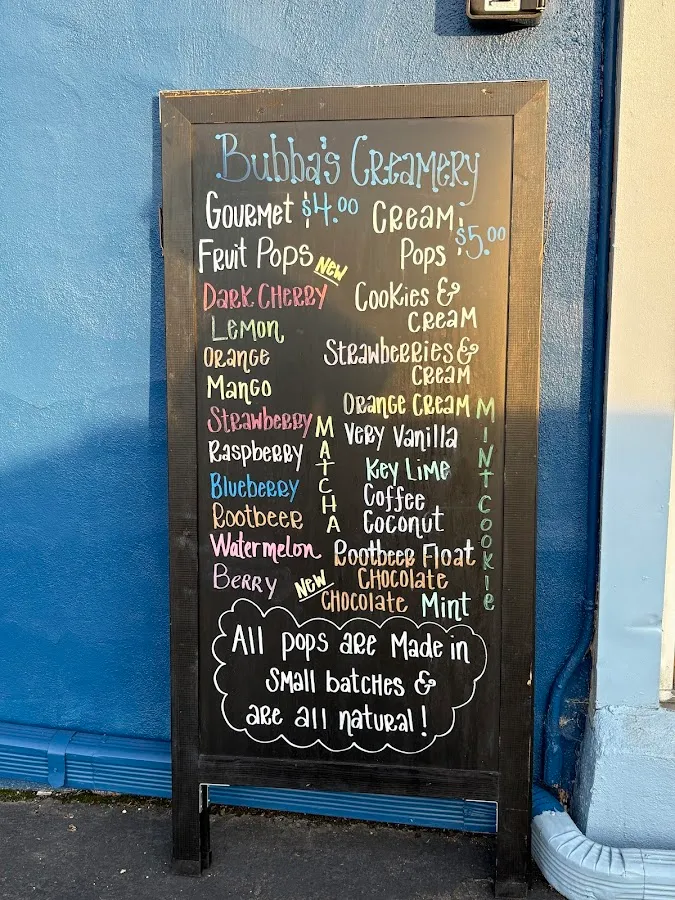 Bubba's Creamery
Gourmet $4.00
Fruit Pops
New
Dark Cherry
Lemon
Orange
Mango
Strawberry
Raspberry
Blueberry
Rootbeer
Watermelon
Berry
MATCHA
Cream $5.00
Pops
Cookies &
Cream
Strawberries &
Cream
Orange Cream
Very Vanilla
Key Lime
Coffee
Coconut
Rootbeer Float
Chocolate
New
Chocolate Mint
Mint Cookie
All pops are Made in
Small batches &
are all natural!